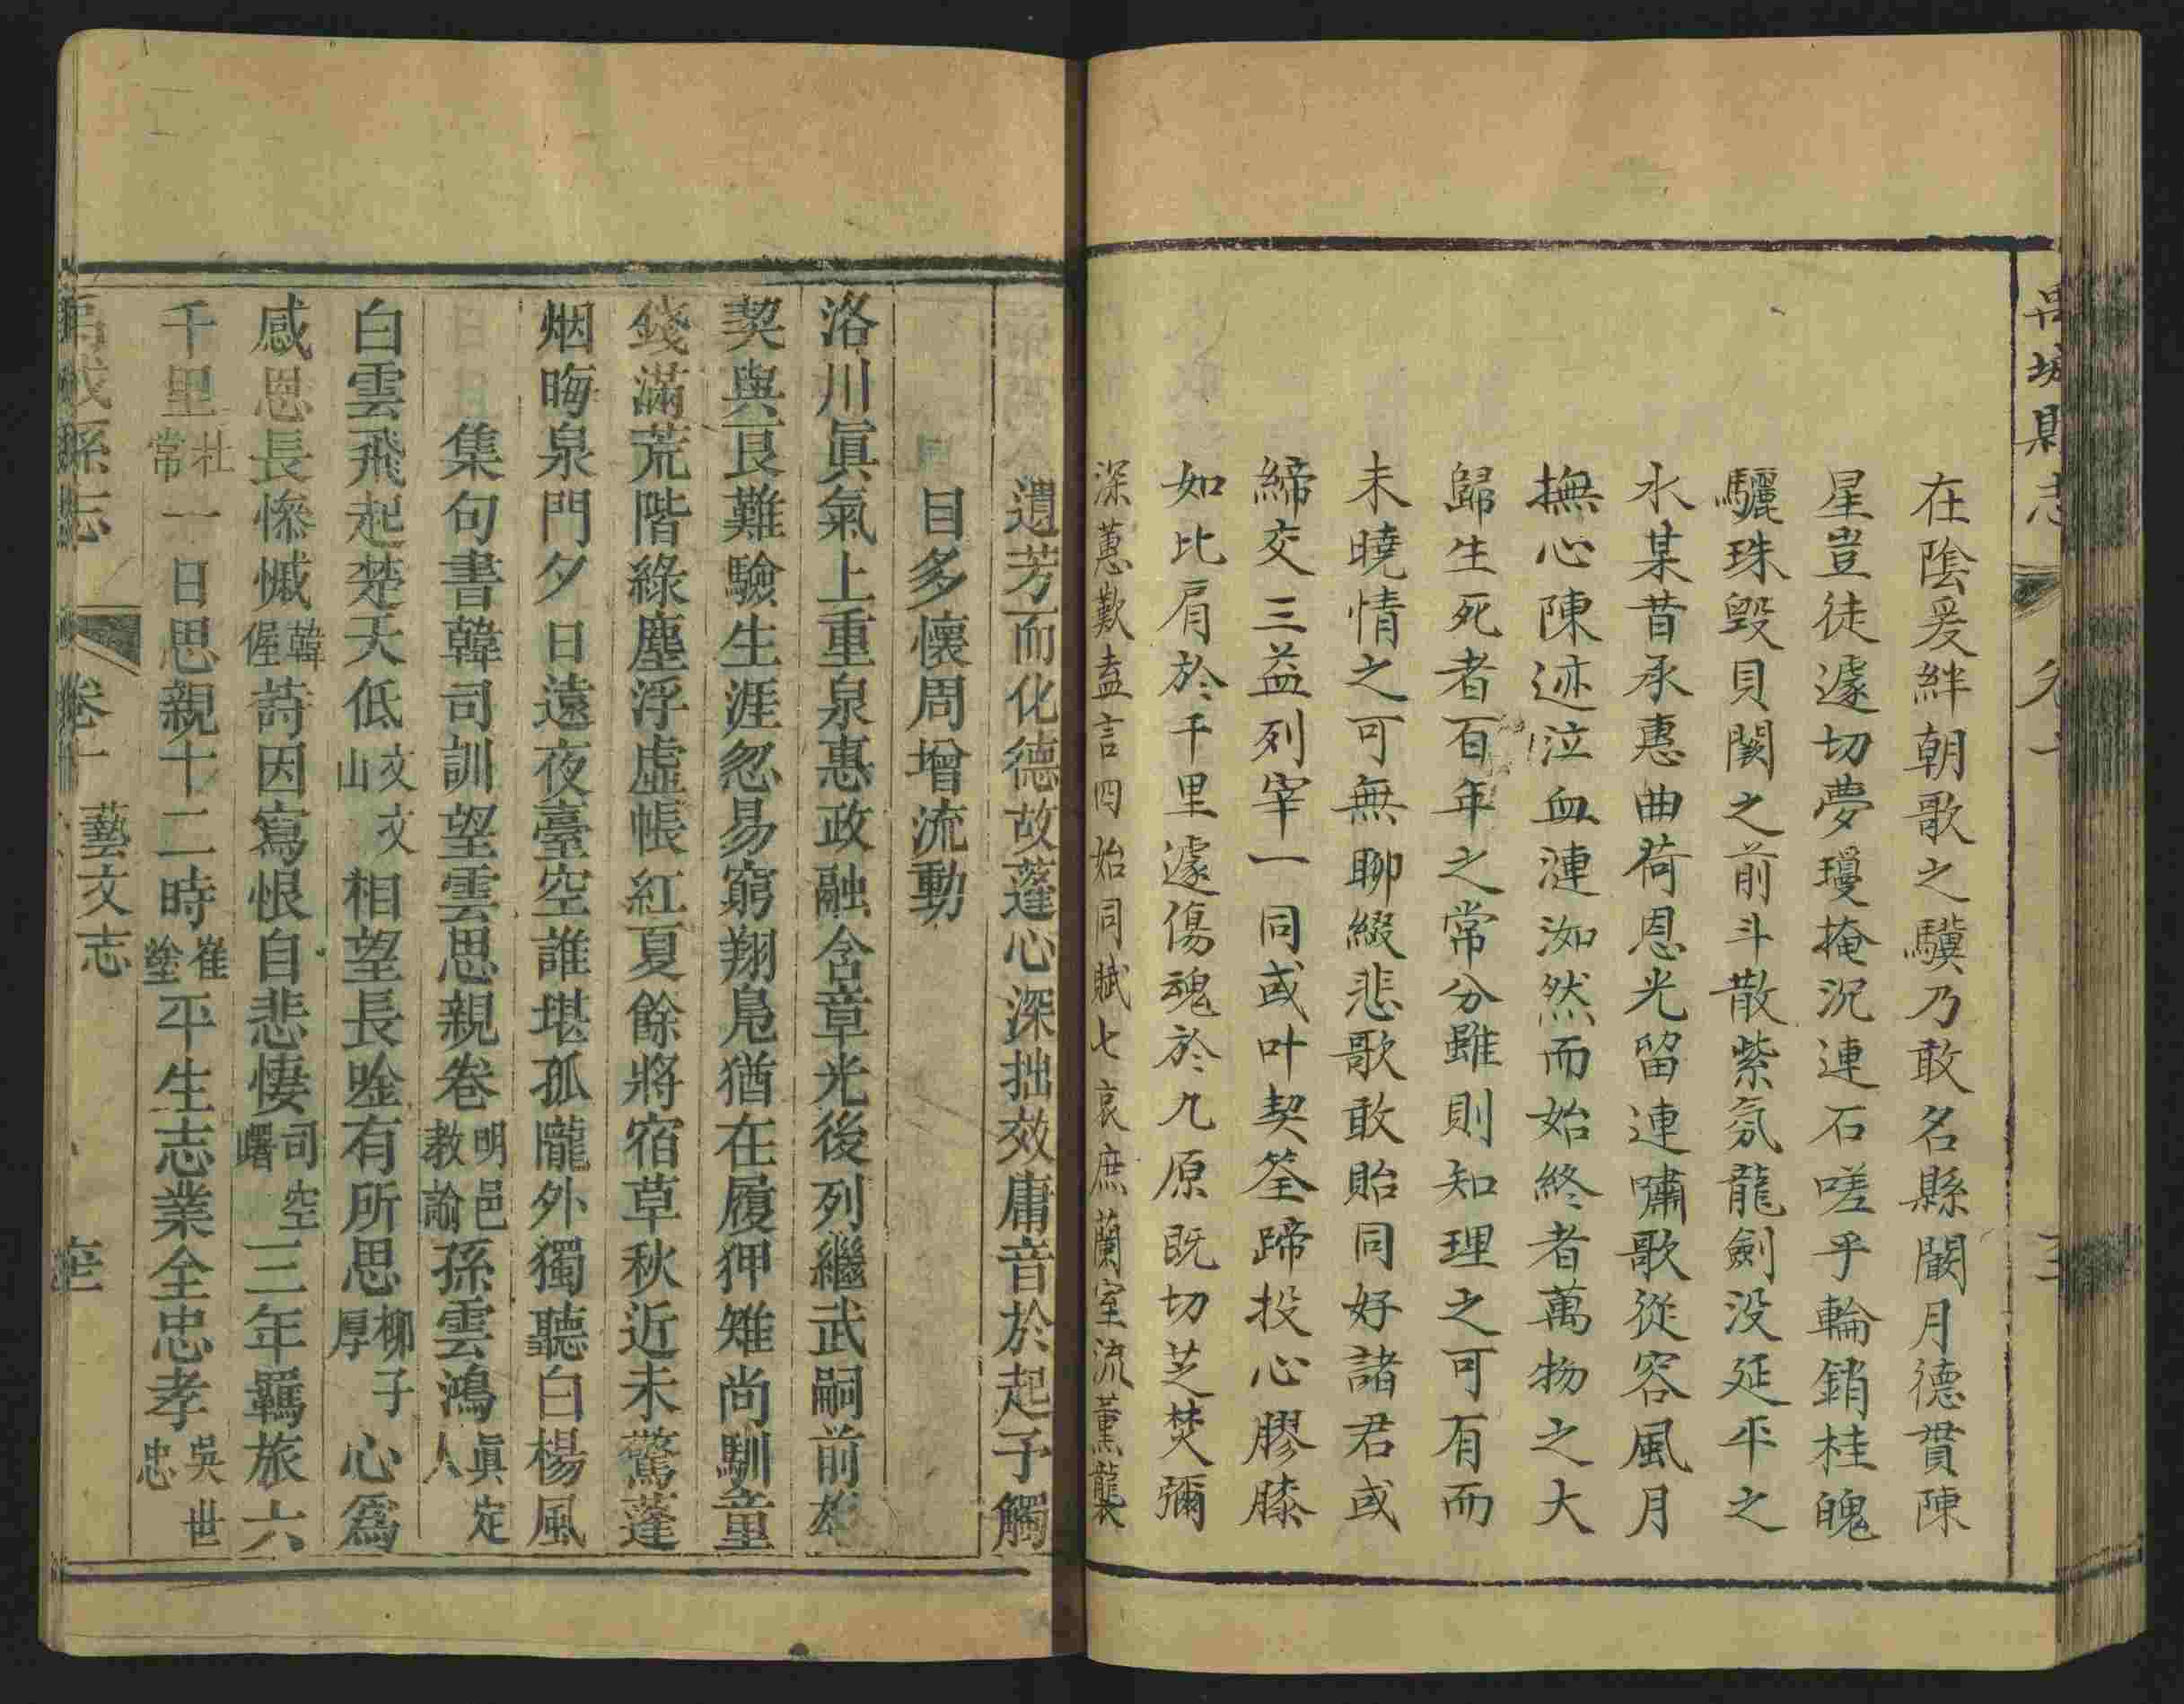 禹城縣志 卷十
在陰爰絆朝歌之驥乃敢名縣闞月德貫陳
星豈徒遽切夢瓊掩況連石嗟乎輪銷桂魄
驪珠毀貝闕之前斗散紫氛龍劍没延平之
水某昔承恵曲荷恩光留連嘯歌從容風月
撫心陳迹泣血漣洳然而始終者萬物之大
歸生死者百年之常分雖則知理之可有而
未曉情之可無聊綴悲歌敢貽同好諸君或
締交三益列宰一同或叶契筌蹄投心膠膝
如比肩於千里遽傷魂於九原既切芝焚彌
深蕙歎盍言四始同賦七哀庶蘭室流薰襲
遺芳而化德故蓬心深拙效庸音於起予觸
目多懷周增流動
洛川眞氣上重泉惠政融含章光後列繼武嗣前雄
契與艮難驗生涯忽易窮翔鳧猶在履狎雉尚馴童
錢滿荒階綠塵浮虛帳紅夏餘將宿草秋近未驚蓬
烟晦泉門夕日遠夜臺空誰堪孤隴外獨聽白楊風
集句書韓司訓望雲思親卷 明邑教諭 孫雲鴻 眞定人
白雲飛起楚天低 文文山 相望長唫有所思 柳子厚 心爲
感恩長慘慽 韓偓 詩因寫恨自悲悽 司空曙 三年羈旅六
千里 杜常 一日思親十二時 崔塗 平生志業全忠孝 吳世忠
禹城縣志 卷十 藝文志